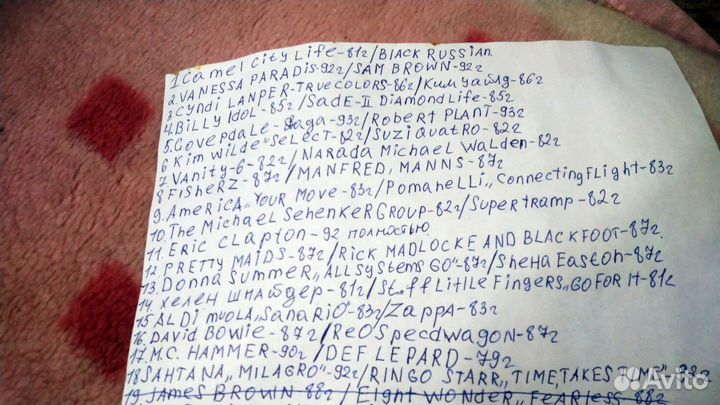 1 Camel City Life-81г/BLACK RUSSIAN
2. VANESSA PARADIS-92г/SAM BROWN-92г
3 CYNDI LANPER-TRUE COLORS-86г/Ким уайлд-86г
4. BILLY IDOL-85г/SadE-II DiamondLife-85г
5. Goverdale-Paga-93г/Robert PLANT-93г
6 Kim Wilde "SeLect-82г/Suzi Quatro-82г
7. Vanity-6-82г/Narada Michael Walden-82г
8 FisherZ-87г/MANFRED, MANNS-87г
9. AmericA "YOUR Move-83г/Pomanelli „ConnectingFlight-83г
10. The Michael SehenkeR GROUP-82г/Supertramp-82г
11. ERic Clapton-92 полностью
12. PRETTY MAIDS-87г/RICK MADLOCKE AND BLACKFOOT-87г
13. Donna Summer „ALLSystems GO"-87г/Sheha Easton-87г
14. хелен шнайдер-81г/St.ff LitlLe Fingers „GO FOR IT-81г
15 AL Di muoLA „SanaRiO-83г/ZAPPA-83г
16. DAViD BOWie-87г/ReO Specdwagon-87г
17. M.C. HAMMER-90г/DEF LEPARD-79г
18 SAHTANA „MILAGRO"-92г/RINGO STARR „TIME, TAKES TIME"-92г
19. JAMES BROWN-88г/EIGHT WONDER „FEARLESS-88г
Avito